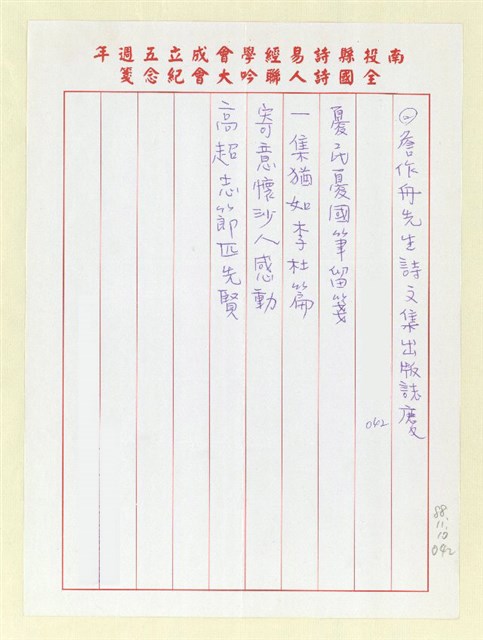 南投縣詩易經學會成立五週年
全國詩人聯吟大會紀念箋
○詹作舟先生詩文集出版誌慶
042
憂民憂國筆留箋
一集猶如李杜篇
寄意懷沙人感動
高超志節匹先賢
88.
11.
10
042